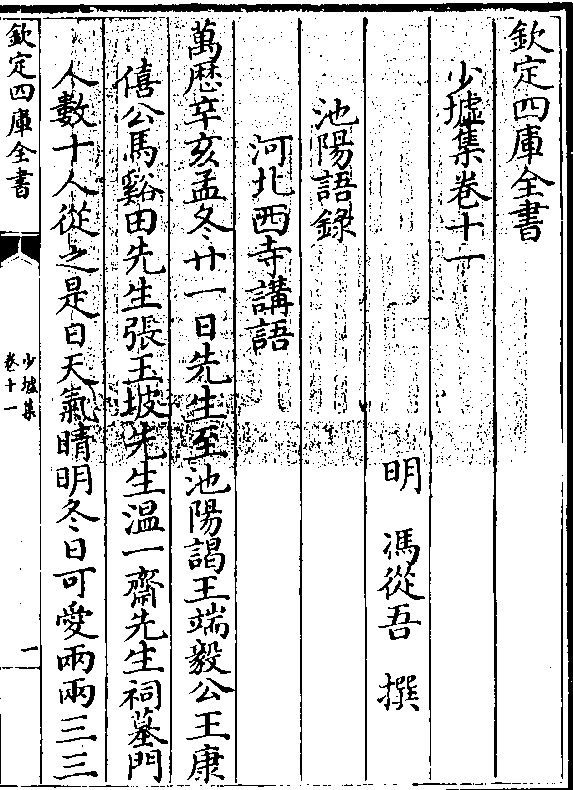 欽定四庫全書
少墟集卷十一
明 馮從吾 撰
池陽語錄
河北西寺講語
萬歷辛亥孟冬廿一日先生至池陽謁王端毅公王康
僖公馬谿田先生張玉坡先生溫一齋先生祠墓門
人數十人從之是日天氣晴明冬日可愛兩兩三三
欽定四庫全書
少墟集
卷十一
一